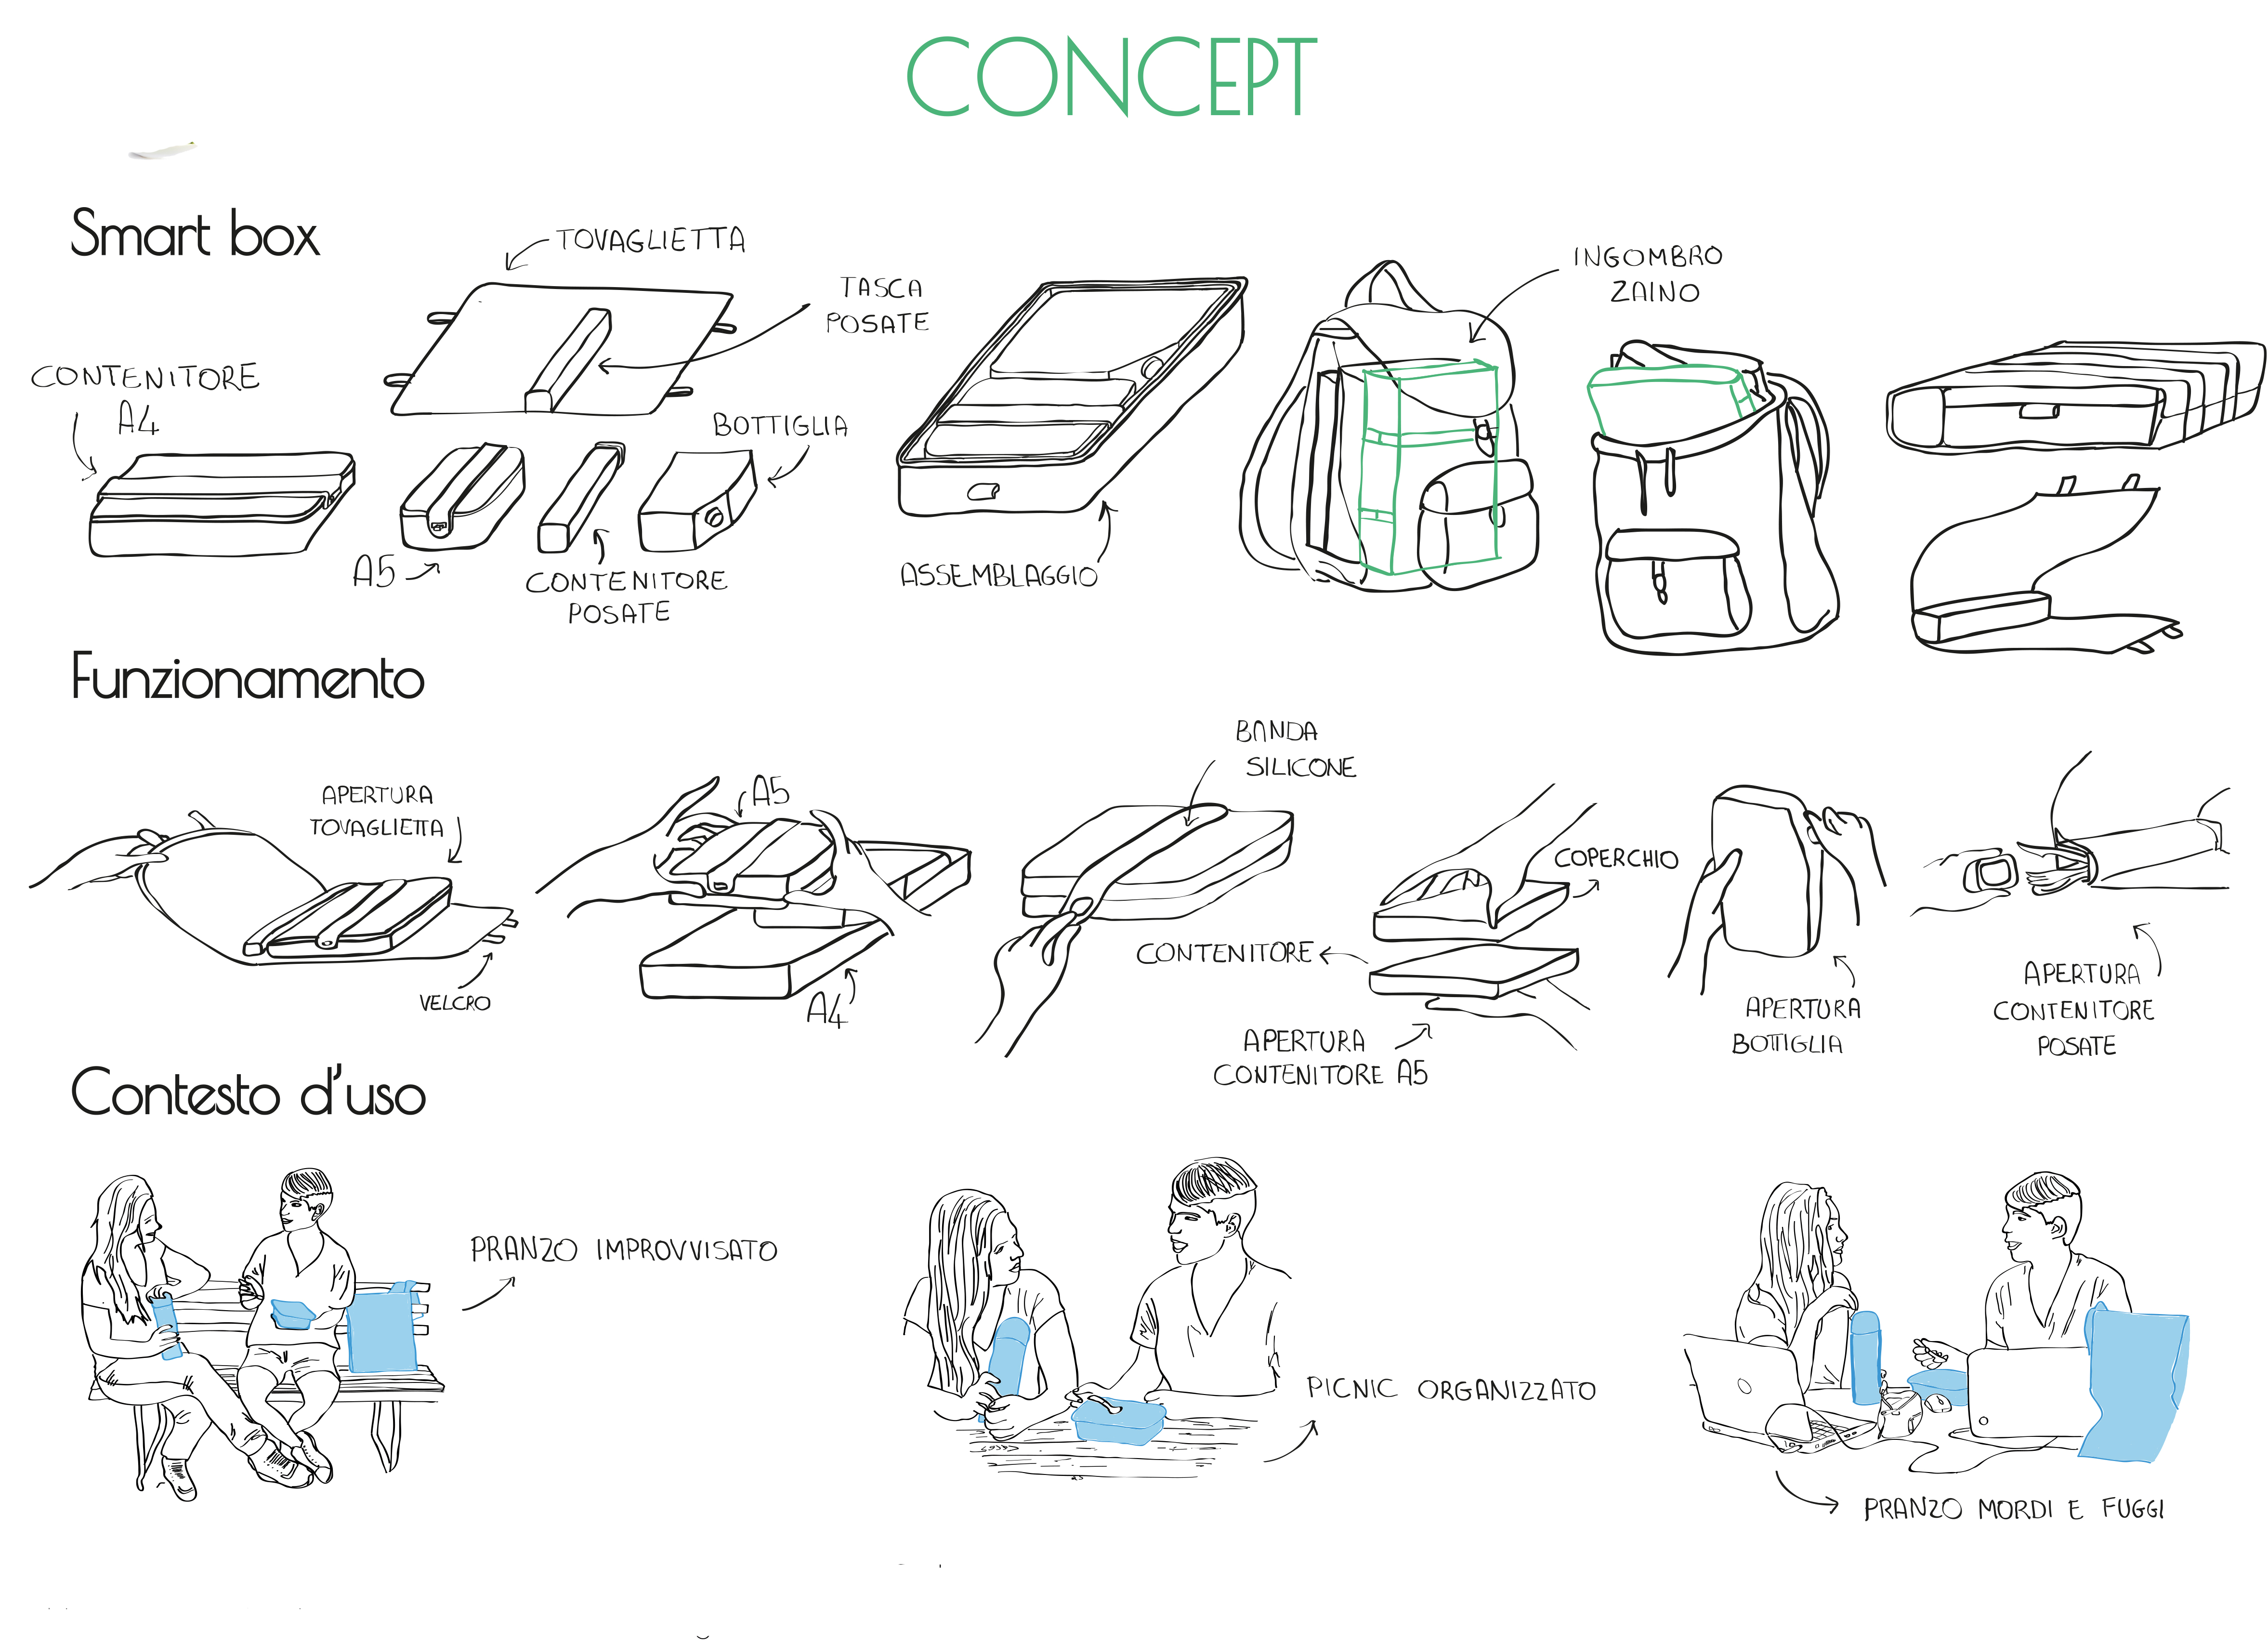 CONCEPT
Smart box
TOVAGLIETTA
TASCA
POSATE
CONTENITORE
A4
BOTTIGLIA
A5
CONTENITORE
POSATE
ASSEMBLAGGIO
INGOMBRO
ZAINO
Funzionamento
APERTURA
TOVAGLIETTA
VELCRO
A5
A4
BANDA
SILICONE
COPERCHIO
CONTENITORE
APERTURA
CONTENITORE A5
APERTURA
BOTTIGLIA
APERTURA
CONTENITORE
POSATE
Contesto d'uso
PRANZO IMPROVVISATO
PICNIC ORGANIZZATO
PRANZO MORDI E FUGGI